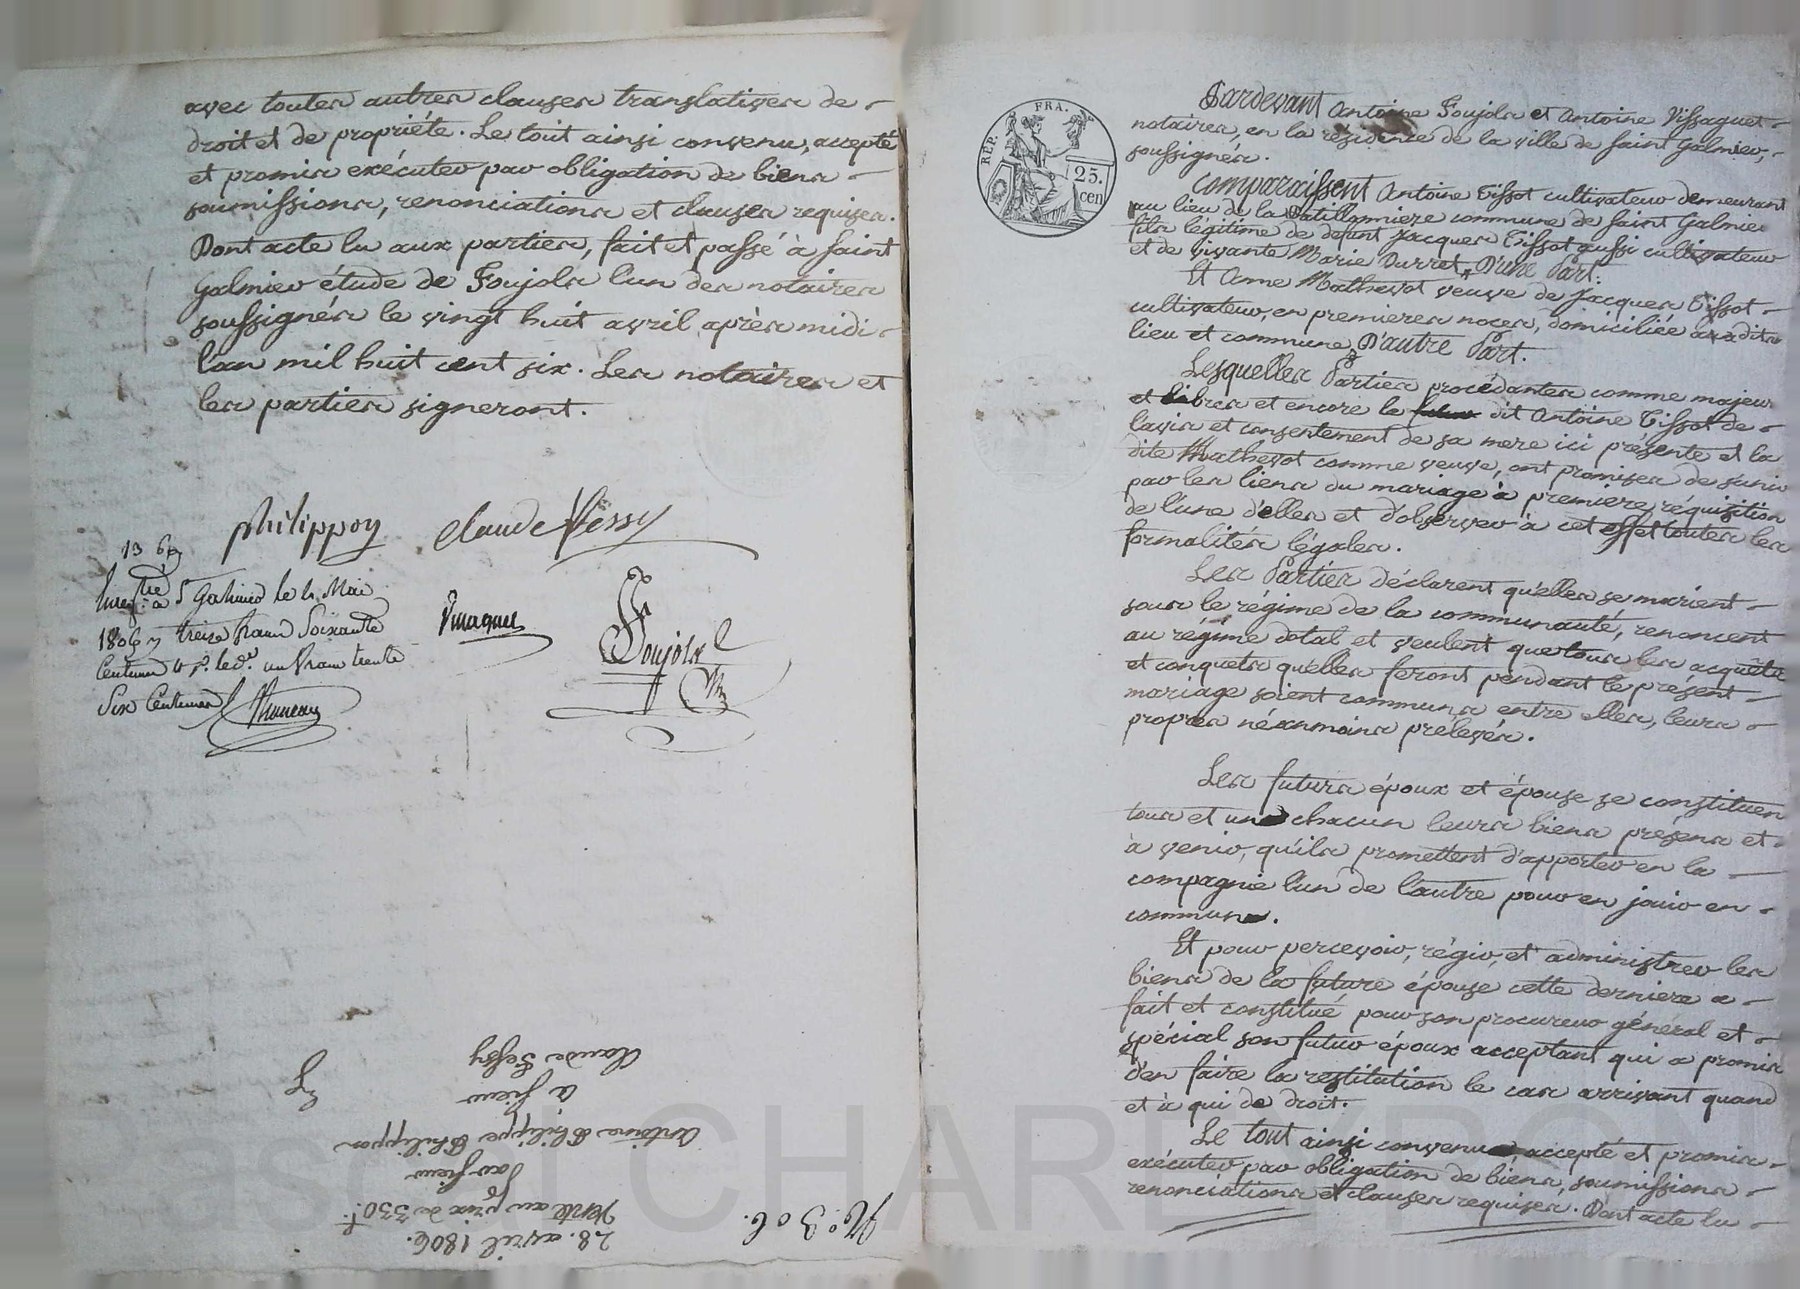 avec toutes autres clauses translatives de
droit et de propriéte. Le tout ainsi convenu, accepté
et promis exécuter par obligation de biens
soumissions, renonciations et clauses requises.
Dont acte lu aux parties, fait et passé à saint
Galmier étude de Foujols l'un des notaires
soussignés le vingt huit avril après midi
l'an mil huit cent six. Les notaires et
les parties signeront.
philippon Claude Fessy
13 65
à St Galmier le 4 Mai
1806 treize francs Soixante
Centimes un franc trente
Six Centimes
Foujols
No. 306.
28. avril 1806.
Vente au prix de 330 f.
Par sieur
Antoine Philippe Philippon
à sieur
Claude Fessy
RÉP. FRA.
25.
cen
Pardevant Antoine Foujols et Antoine Vissaguet
notaires, en la résidence de la ville de saint Galmier,
soussignés.
Comparaissent Antoine Tissot cultivateur demeurant
au lieu de la commune de saint Galmier
fils légitime de défunt Jacques Tissot aussi cultivateur
et de vivante Marie Durret, D'une Part.
Et Anne Mathevot veuve de Jacques Tissot
cultivateur, en premieres noces, domiciliée
lieu et commune, D'autre Part.
Lesquelles Parties procédantes comme majeurs
et libres et encore le dit Antoine Tissot de
l'avis et consentement de sa mere ici présente et la
dite Mathevot comme veuve, ont promises de s'unir
par les liens du mariage à premiere réquisition
de l'une d'elles et d'observer à cet effet toutes les
formalités légales.
Les Parties déclarent qu'elles se marient
sous le régime de la communauté, renoncent
au régime dotal et veulent que tous les acquêts
et conquets qu'elles feront pendant le présent
mariage soient communs entre elles, leurs
propres néanmoins prélevés.
Les futurs époux et épouse se constituent
tous et un chacun leurs biens présens et
à venir, qu'ils promettent d'apporter en la
compagnie l'un de l'autre pour en jouir en
commun.
Et pour percevoir, régir, et administrer les
biens de la future épouse cette derniere a
fait et constitué pour son procureur général et
spécial son futur époux acceptant qui a promis
d'en faire la restitution le cas arrivant quand
et à qui de droit.
Le tout ainsi convenu accepté et promis
exécuter par obligation de biens, soumissions
renonciations et clauses requises. Dont acte lu
Pascal CHARDYRON